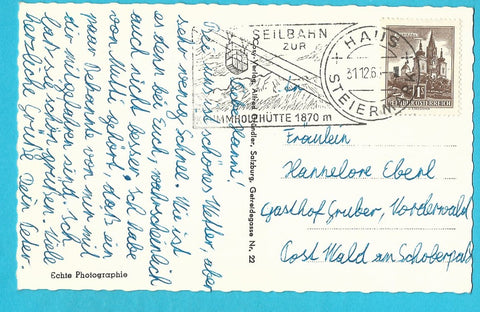 Liebe Hanni!
Bei uns ist schönes Wetter, aber
sehr wenig Schnee. Wie ist
es denn bei Euch, wahrscheinlich
auch nicht besser. Ich habe
von Mutti gehört, daß ein
paar Bekannte von mir mit
dir eingetroffen sind. Ich
laß sie schön grüßen. Viele
herzliche Grüße Dein
Echte Photographie
Verlag Alfred Gründler, Salzburg, Getreidegasse Nr. 22
SEILBAHN
ZUR
KRUMMHOLZHÜTTE 1870 m
HAUS
31.12.6
STEIERM
REPUBLIK ÖSTERREICH
Fräulein
Hannelore Eberl
Gasthof Gruber, Vorderwald
Post Wald am Schoberpaß